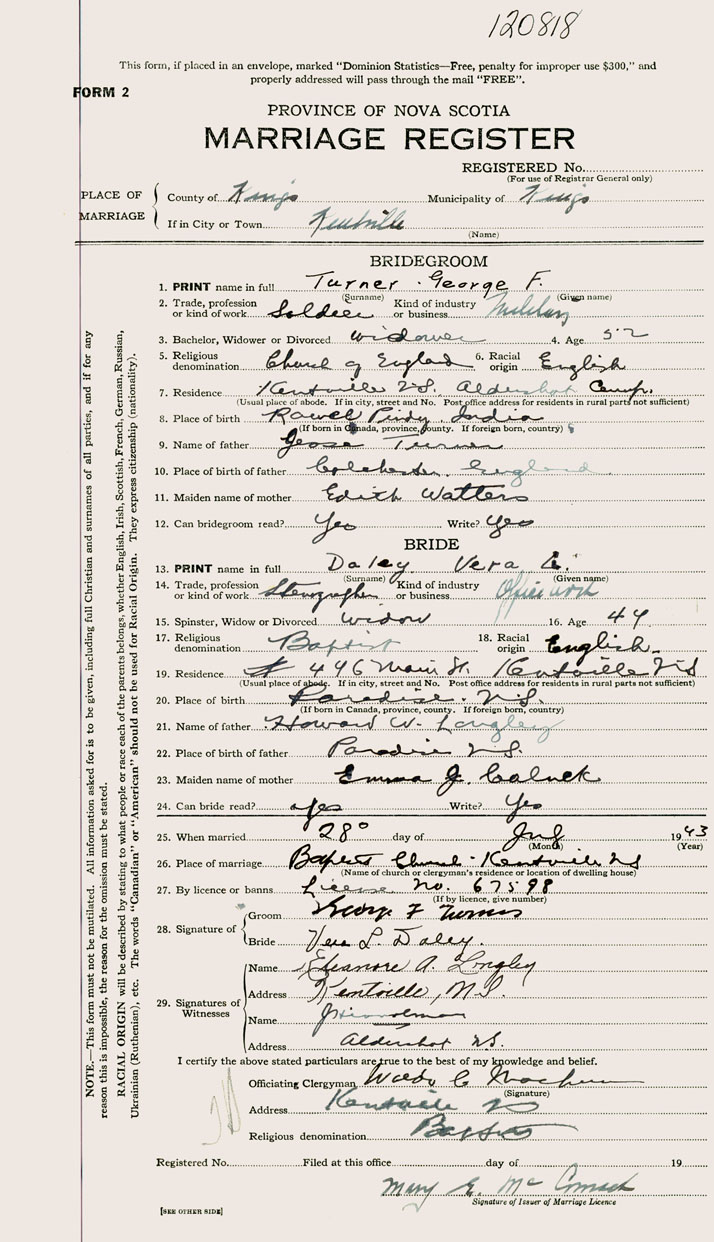 120818
This form, if placed in an envelope, marked "Dominion Statistics—Free, penalty for improper use $300," and
properly addressed will pass through the mail "FREE".
FORM 2
PROVINCE OF NOVA SCOTIA
MARRIAGE REGISTER
REGISTERED No.
(For use of Registrar General only)
PLACE OF MARRIAGE
County of Kings Municipality of Kings
If in City or Town Kentville
(Name)
BRIDEGROOM
1. PRINT name in full Turner George F.
(Surname) (Given name)
2. Trade, profession or kind of work Soldier Kind of industry or business Military
3. Bachelor, Widower or Divorced widower 4. Age 52
5. Religious denomination Church of England 6. Racial origin English
7. Residence Kentville N.S. Aldershot Camp.
(Usual place of abode. If in city, street and No. Post office address for residents in rural parts not sufficient)
8. Place of birth Rawel Pindy India
(If born in Canada, province, county. If foreign born, country)
9. Name of father George Turner
10. Place of birth of father Colchester England
11. Maiden name of mother Edith Watters
12. Can bridegroom read? Yes Write? Yes
BRIDE
13. PRINT name in full Daley Vera
(Surname) (Given name)
14. Trade, profession or kind of work Stenographer Kind of industry or business Office work
15. Spinster, Widow or Divorced widow 16. Age 44
17. Religious denomination Baptist 18. Racial origin English
19. Residence # 446 Main St. Kentville N S
(Usual place of abode. If in city, street and No. Post office address for residents in rural parts not sufficient)
20. Place of birth Paradise. N.S.
(If born in Canada, province, county. If foreign born, country)
21. Name of father Howard W. Longley
22. Place of birth of father Paradise N.S.
23. Maiden name of mother Emma J.
24. Can bride read? Yes Write? Yes
25. When married 28 day of 1943
(Month) (Year)
26. Place of marriage Baptist Church Kentville N S
(Name of church or clergyman's residence or location of dwelling house)
27. By licence or banns License No. 67598
(If by licence, give number)
28. Signature of
Groom George F Turner
Bride Vera L. Daley.
29. Signatures of Witnesses
Name Eleanore A. Longley
Address Kentville, N.S.
Name
Address Aldershot N.S.
I certify the above stated particulars are true to the best of my knowledge and belief.
Officiating Clergyman
(Signature)
Address Kentville N S
Religious denomination Baptist
Registered No. Filed at this office day of 19
Mary E. McCormack
Signature of Issuer of Marriage Licence
[SEE OTHER SIDE]
NOTE.—This form must not be mutilated. All information asked for is to be given, including full Christian and surnames of all parties, and if for any
reason this is impossible, the reason for the omission must be stated.
RACIAL ORIGIN will be described by stating to what people or race each of the parents belongs, whether English, Irish, Scottish, French, German, Russian,
Ukrainian (Ruthenian), etc. The words "Canadian" or "American" should not be used for Racial Origin. They express citizenship (nationality).